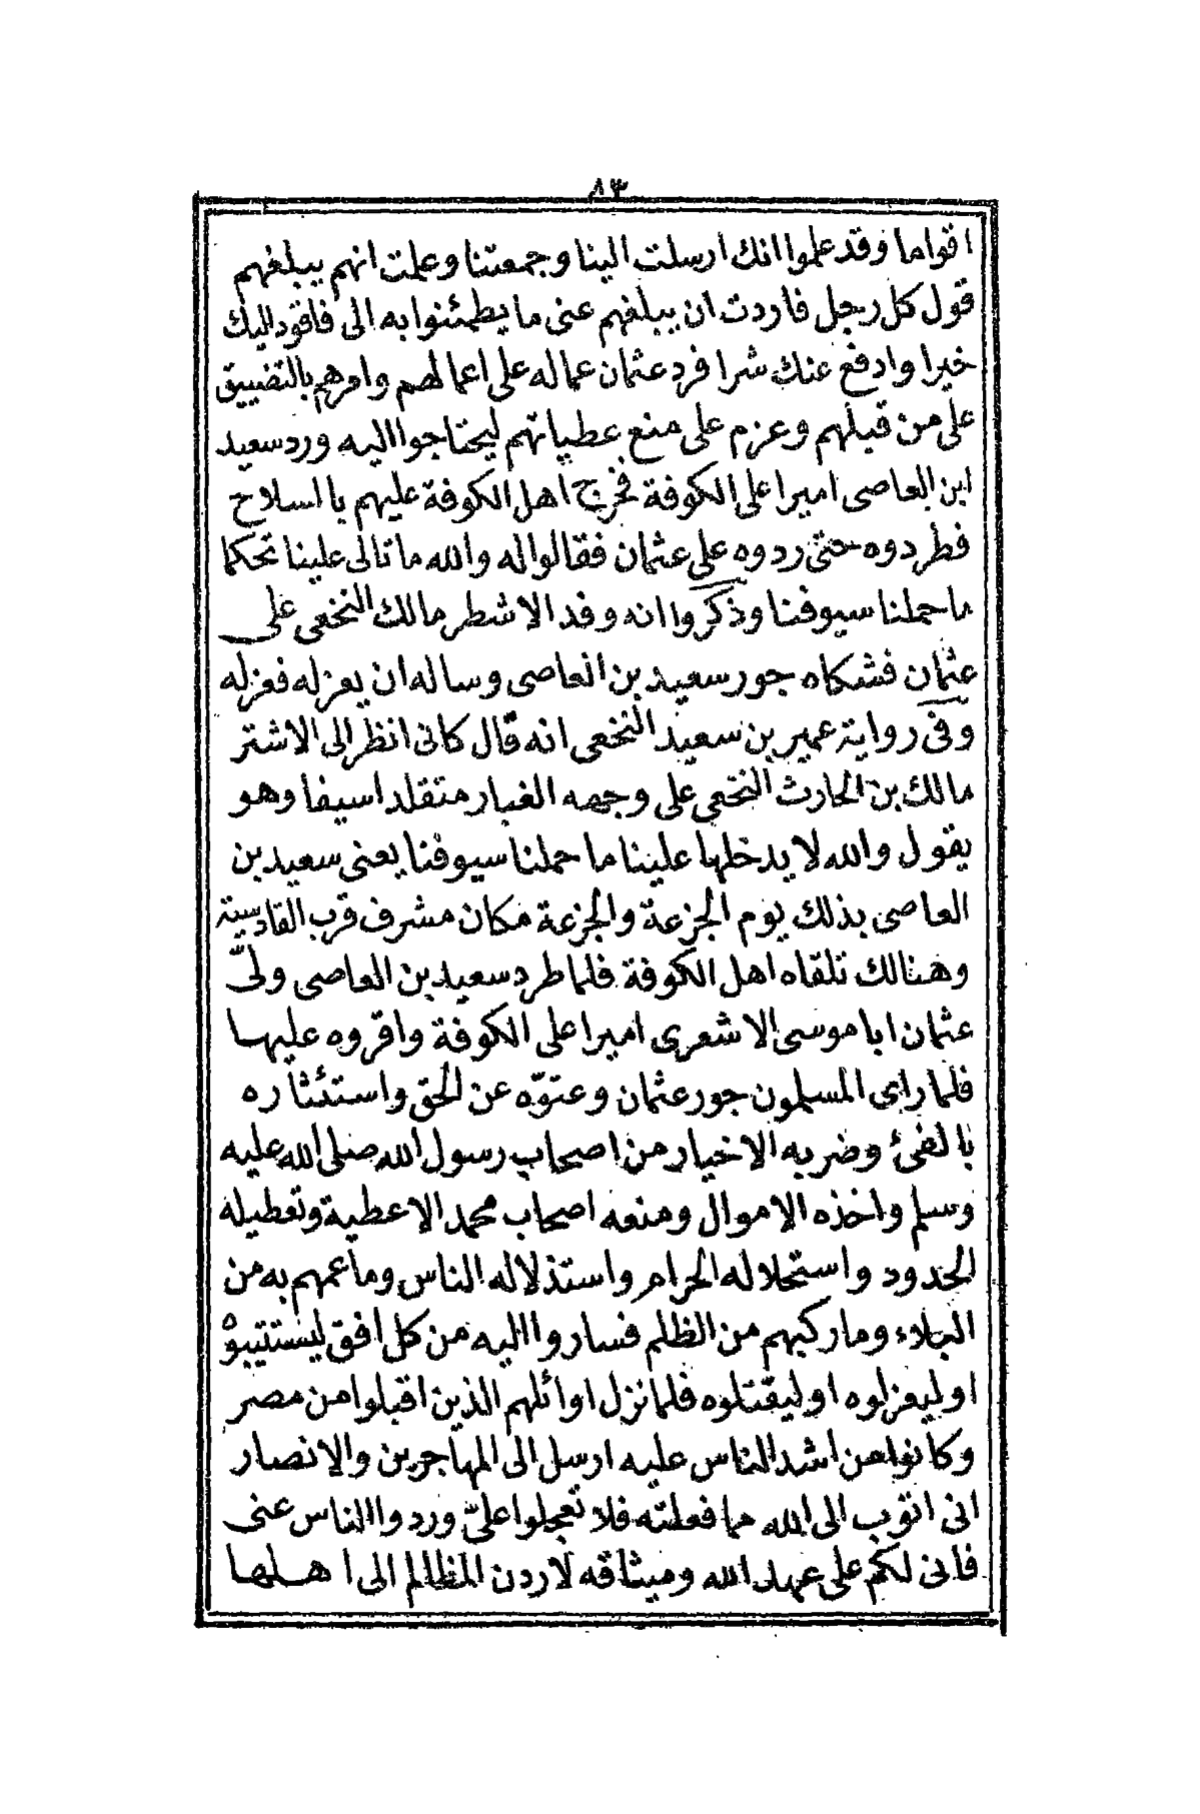 ٨٣
اقواما وقد علموا انك ارسلت الينا وجمعتنا وعلمت انهم يبلغهم
قول كل رجل فاردت ان يبلغهم عنى ما يطمئنوا به الى فاقود اليك
خيرا وادفع عنك شرا فرد عثمان عماله على اعمالهم وامرهم بالتضييق
على من قبلهم وعزم على منع عطياتهم ليحتاجوا اليه ورد سعيد
ابن العاصى اميرا على الكوفة فخرج اهل الكوفة عليهم بالسلاح
فطردوه حتى ردوه على عثمان فقالوا له والله ما تالى علينا تحكما
ما حملنا سيوفنا وذكروا انه وفد الاشطر مالك النخعى على
عثمان فشكاه جور سعيد بن العاصى وساله ان يعزله فعزله
وفى رواية عمير بن سعيد النخعى انه قال كانى انظر الى الاشتر
مالك بن الحارث النخعى على وجهه الغبار متقلدا سيفا وهو
يقول والله لا يدخلها علينا ما حملنا سيوفنا يعنى سعيد بن
العاصى بذلك يوم الجزعة والجزعة مكان مشرف قرب القادسية
وهنالك تلقاه اهل الكوفة فلما طرد سعيد بن العاصى ولّى
عثمان ابا موسى الاشعرى اميرا على الكوفة واقروه عليها
فلما راى المسلمون جور عثمان وعتوّه عن الحق واستئثاره
بالفئ وضربه الاخيار من اصحاب رسول الله صلى الله عليه
وسلم واخذه الاموال ومنعه اصحاب محمد الاعطية وتعطيله
الحدود واستحلاله الحرام واستذلاله الناس وما عمهم به من
البلاء وما ركبهم من الظلم فساروا اليه من كل افق ليستتيبوه
او ليعزلوه او ليقتلوه فلما نزل اوائلهم الذين اقبلوا من مصر
وكانوا من اشد الناس عليه ارسل الى المهاجرين والانصار
انى اتوب الى الله مما فعلته فلا تعجلوا علىّ وردوا الناس عنى
فانى لكم على عهد الله وميثاقه لاردن المظالم الى اهلها